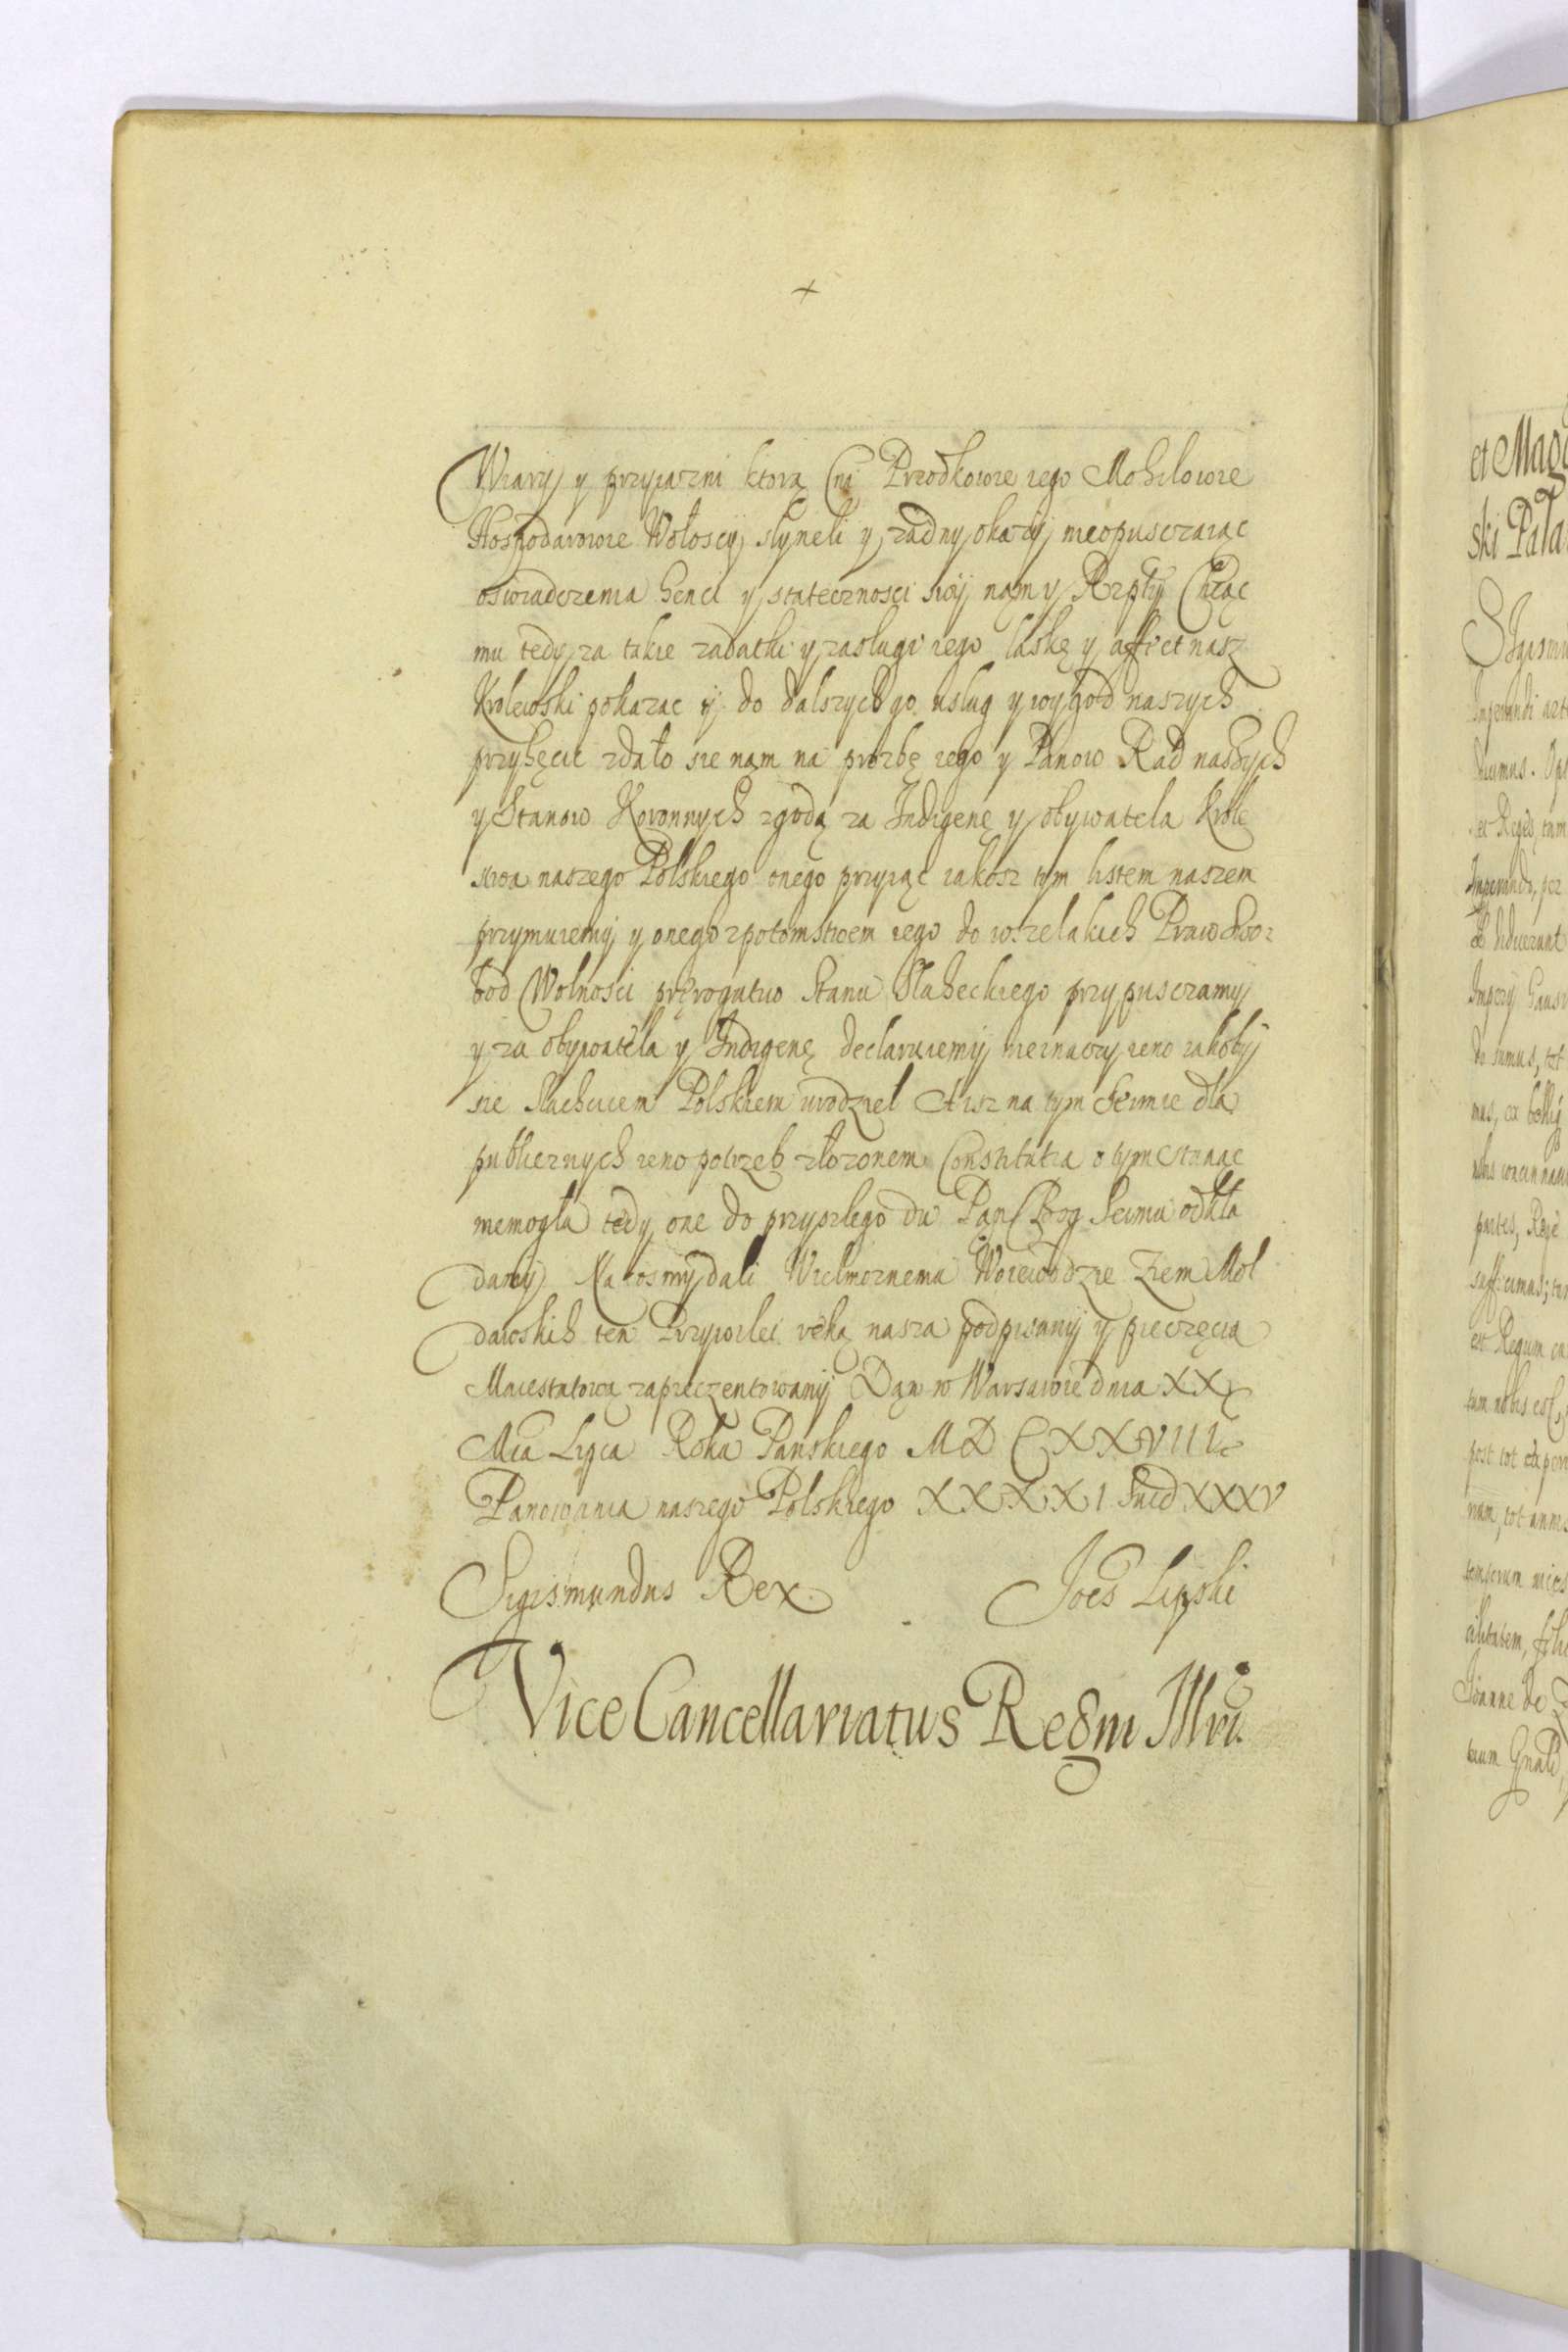 Wiary y przyiazni ktorą Cni Przodkowie iego Mohilowie
Hospodarowie Wołoscy słyneli y zadny okaziy nieopusczaiąc
oswiadczenia henci y statecznosci swy nąm y Rzpty Chcąc
mu tedy za takie zadatki y zasługi iego łaskę y affect nasz
Krolewski pokazac y do dalszych go usług y wygod naszych
przyhęcic zdało sie nąm na prozbę iego y Panow Rad naszych
y Stanow Koronnych zgodą za Indigenę y obywatela Krole
stwa naszego Polskiego onego przyiąc iakosz tym listem naszem
przymuiemy y onego z potomstwem iego do wszelakich Praw Swo:
bod Wolnosci prerogatiw Stanu Slaheckiego przypusczamy
y za obywatela y Indigenę declaruiemy nieinaczy ieno iakoby
sie Slachcicem Polskiem urodziel A isz na tym Seimie dla
publicznych ieno potrzeb złozonem Constitutia o tym stanąc
niemogła tedy one do przyszlego da Pąn Bog Seimu odkła
damy Na cosmy dali Wielmoznemu Woiewodzie Ziem Mol
dawskich ten Przywilei ręką nasza podpisany y pieczęcią
Maiestatową zapieczentowany Dąn w Warsawie dnia XX
Mca Lipca Roku Panskiego MDCXXVIII
Panowania naszego Polskiego XXXXI Swed XXXV
Sigismundus Rex Joes Lipski
Vice Cancellariatus Regni Mri.
et Mag
ski Pala
Sigism